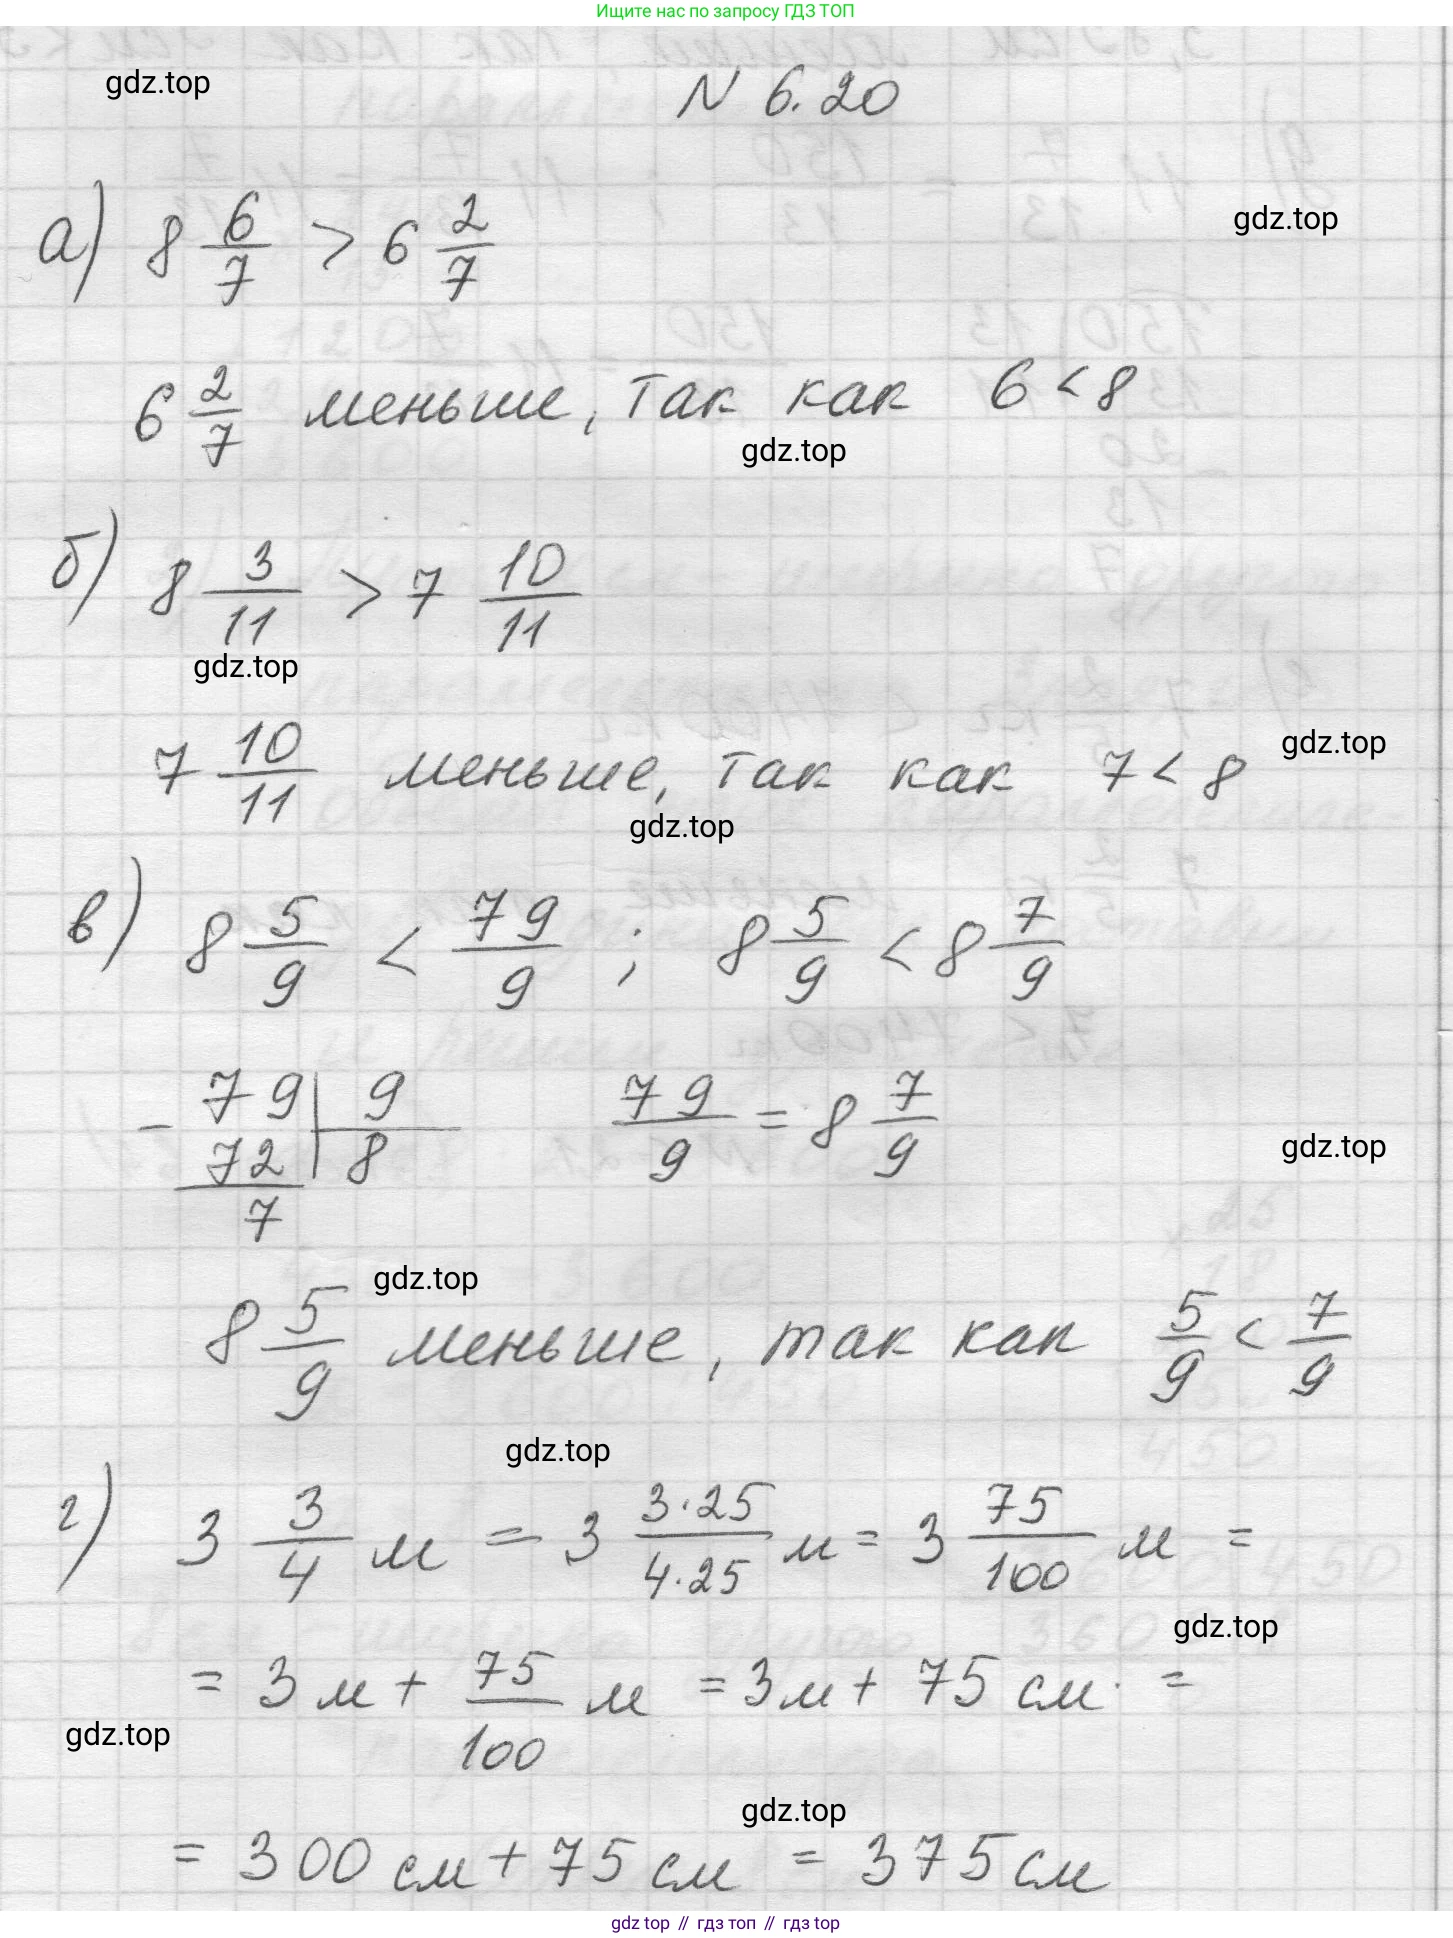 Ищите нас по запросу ГДЗ ТОП
gdz.top
N 6.20
gdz.top
а) 8 6/7 > 6 2/7
6 2/7 меньше, так как 6 < 8
gdz.top
б) 8 3/11 > 7 10/11
gdz.top
7 10/11 меньше, так как 7 < 8
gdz.top
gdz.top
в) 8 5/9 < 79/9 ; 8 5/9 < 8 7/9
- 79 | 9
72 | 8
7
79/9 = 8 7/9
gdz.top
gdz.top
8 5/9 меньше, так как 5/9 < 7/9
gdz.top
г) 3 3/4 м = 3 3·25/4·25 м = 3 75/100 м =
gdz.top
= 3 м + 75/100 м = 3 м + 75 см =
gdz.top
gdz.top
= 300 см + 75 см = 375 см
gdz top // гдз топ // гдз top